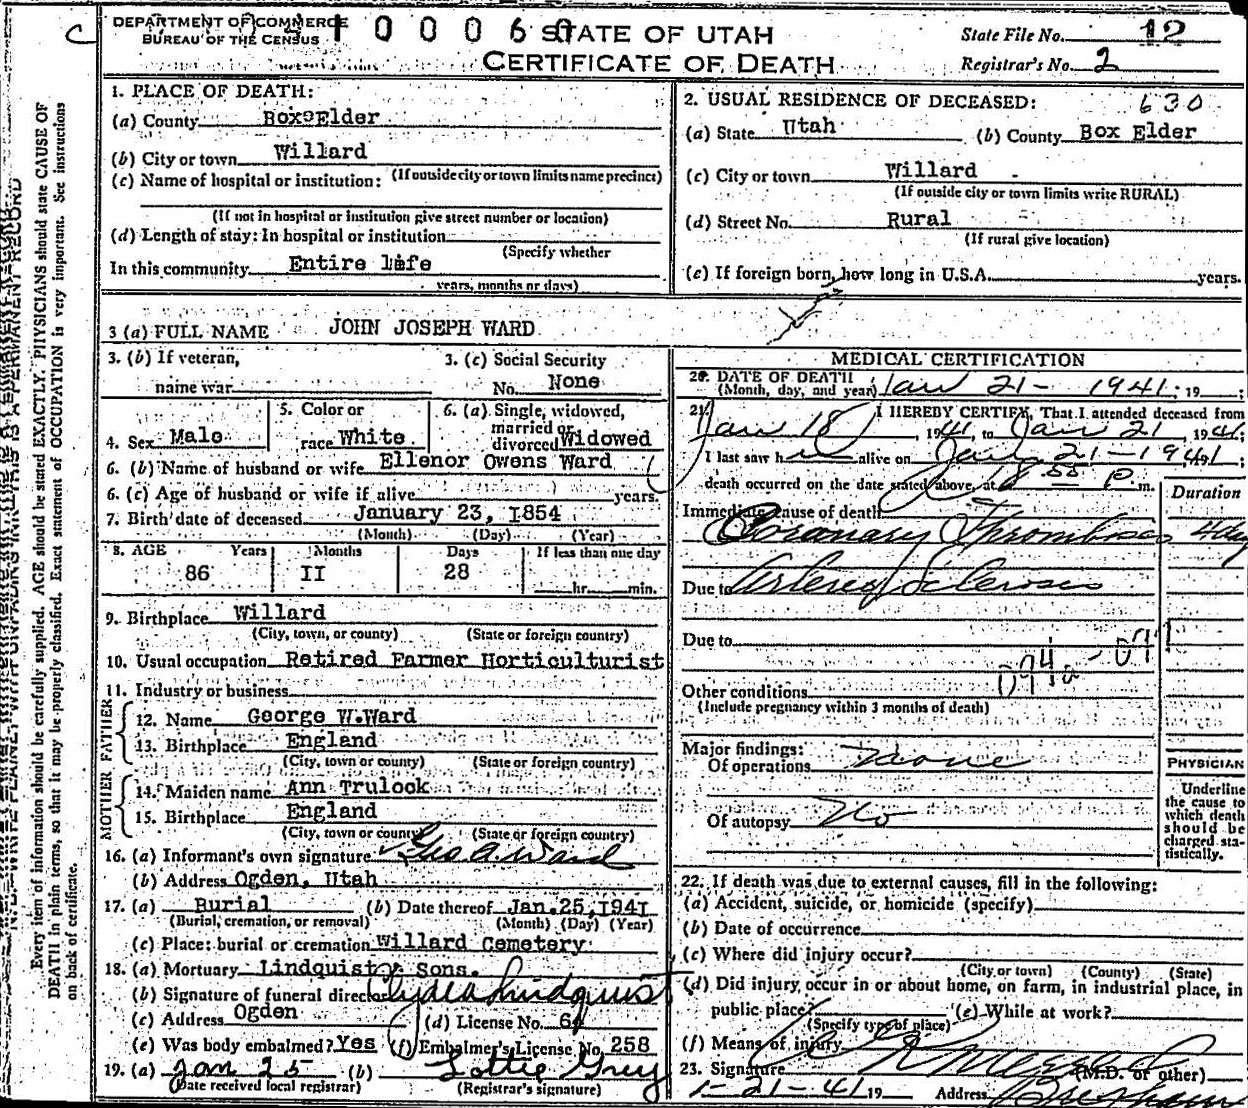 DEPARTMENT OF COMMERCE
BUREAU OF THE CENSUS
STATE OF UTAH
CERTIFICATE OF DEATH
State File No. 12
Registrar's No. 2
1. PLACE OF DEATH:
(a) County Box Elder
(b) City or town Willard
(If outside city or town limits name precinct)
(c) Name of hospital or institution:
(If not in hospital or institution give street number or location)
(d) Length of stay: In hospital or institution
(Specify whether
In this community Entire life
years, months or days)
2. USUAL RESIDENCE OF DECEASED: 630
(a) State Utah (b) County Box Elder
(c) City or town Willard
(If outside city or town limits write RURAL)
(d) Street No. Rural
(If rural give location)
(e) If foreign born, how long in U.S.A. years.
3 (a) FULL NAME JOHN JOSEPH WARD
3. (b) If veteran,
name war
3. (c) Social Security
No. None
4. Sex Male
5. Color or
race White
6. (a) Single, widowed,
married or
divorced Widowed
6. (b) Name of husband or wife Ellenor Owens Ward
6. (c) Age of husband or wife if alive years.
7. Birth date of deceased January 23, I854
(Month) (Day) (Year)
8. AGE Years Months Days If less than one day
86 II 28 hr. min.
9. Birthplace Willard
(City, town, or county) (State or foreign country)
10. Usual occupation Retired Farmer Horticulturist
11. Industry or business
FATHER
12. Name George W.Ward
13. Birthplace England
(City, town or county) (State or foreign country)
MOTHER
14. Maiden name Ann Trulook
15. Birthplace England
(City, town or county) (State or foreign country)
16. (a) Informant's own signature Geo A. Ward
(b) Address Ogden, Utah
17. (a) Burial (b) Date thereof Jan.25,I94I
(Burial, cremation, or removal) (Month) (Day) (Year)
(c) Place: burial or cremation Willard Cemetery
18. (a) Mortuary Lindquist & Sons.
(b) Signature of funeral director Clyde A Lindquist
(c) Address Ogden (d) License No.
(e) Was body embalmed? Yes (f) Embalmer's License No. 258
19. (a) Jan 25 (b) Lottie Grey
(Date received local registrar) (Registrar's signature)
MEDICAL CERTIFICATION
20. DATE OF DEATH
(Month, day, and year) Jan 21- 1941; 19 ;
21. I HEREBY CERTIFY, That I attended deceased from
Jan 18, 1941, to Jan 21, 1941;
I last saw h alive on Jan 21-1941;
death occurred on the date stated above, at 8 55 P m.
Duration
Immediate cause of death
Coronary Thrombosis 4 day
Due to Arterio Sclerosis
Due to
094a
Other conditions
(Include pregnancy within 3 months of death)
Major findings:
Of operations None
Of autopsy No
PHYSICIAN
Underline
the cause to
which death
should be
charged sta-
tistically.
22. If death was due to external causes, fill in the following:
(a) Accident, suicide, or homicide (specify)
(b) Date of occurrence
(c) Where did injury occur?
(City or town) (County) (State)
(d) Did injury occur in or about home, on farm, in industrial place, in
public place? (e) While at work?
(Specify type of place)
(f) Means of injury
23. Signature (M.D. or other)
1-21-41 19 Address Brigham
Every item of information should be carefully supplied. AGE should be stated EXACTLY. PHYSICIANS should state CAUSE OF
DEATH in plain terms, so that it may be properly classified. Exact statement of OCCUPATION is very important. See instructions
on back of certificate.